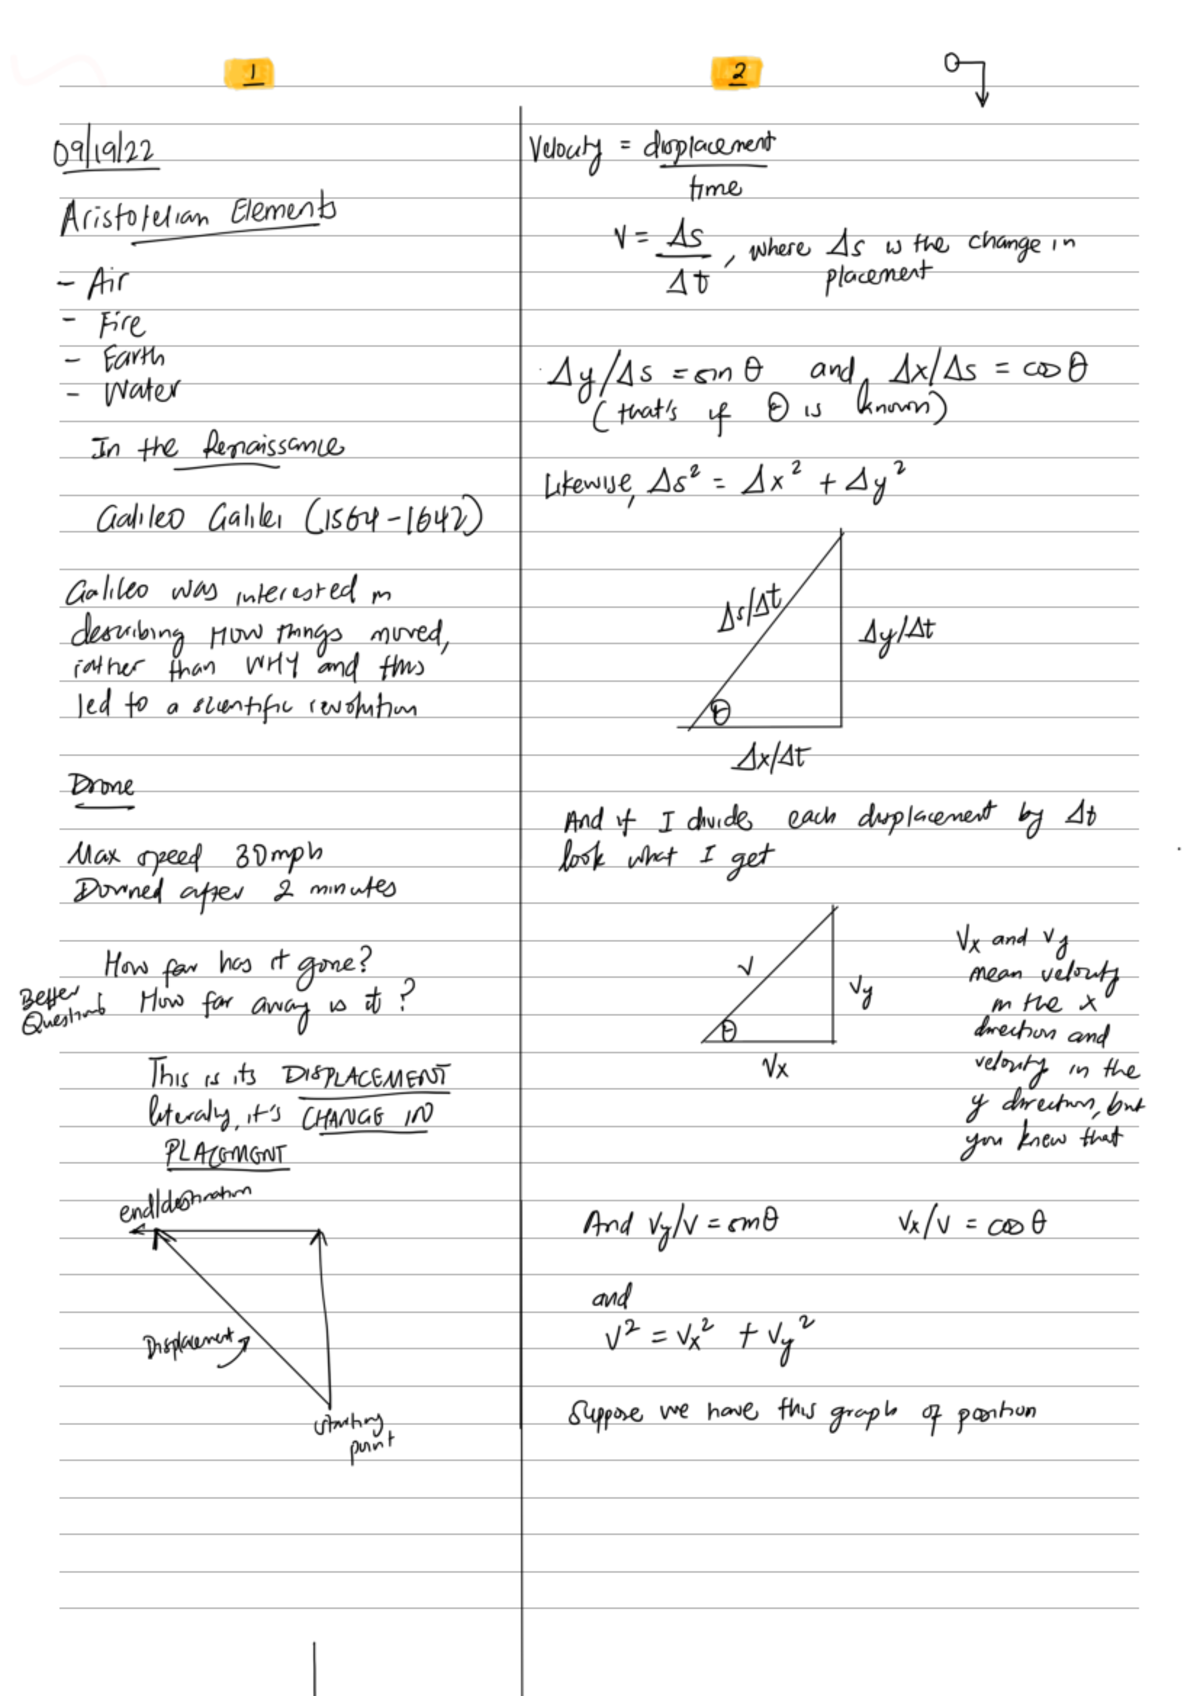 1
09/19/22
Aristotelian Elements
- Air
- Fire
- Earth
- Water
In the Renaissance
Galileo Galilei (1564-1642)
Galileo was interested in
describing HOW things moved,
rather than WHY and this
led to a scientific revolution
Drone
Max speed 30mph
Downed after 2 minutes
How far has it gone?
Better Question: How far away is it?
This is its DISPLACEMENT
literally, it's CHANGE IN
PLACEMENT
end/destination
Displacement
starting
point
2
Velocity = displacement
time
V = Δs
Δt
, where Δs is the change in
placement
Δy/Δs = sin θ and, Δx/Δs = cos θ
(that's if θ is known)
Likewise, Δs² = Δx² + Δy²
Δs/Δt
Δy/Δt
θ
Δx/Δt
And if I divide each displacement by Δt
look what I get
V
Vy
θ
Vx
Vx and Vy
mean velocity
in the x
direction and
velocity in the
y direction, but
you knew that
And Vy/V = sinθ Vx/V = cos θ
and
V² = Vx² + Vy²
Suppose we have this graph of position